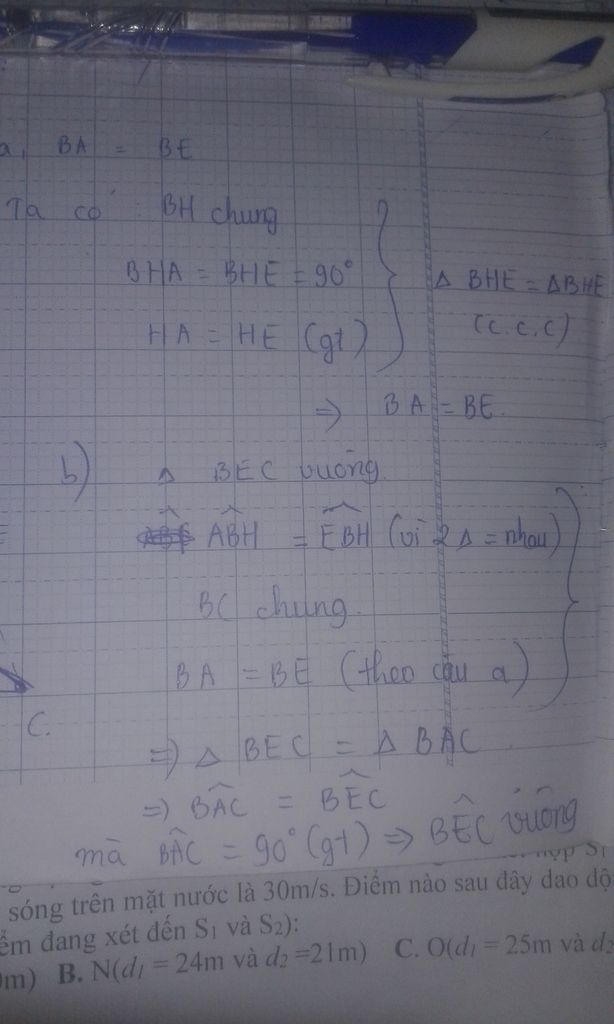 a, BA = BE
Ta có : BH chung
BHA = BHE = 90°
HA = HE (gt)
Δ BHE = ΔBHE
(c.c.c)
=> BA = BE.
b) Δ BEC vuông.
ABH = EBH (vì 2 Δ = nhau)
BC chung.
BA = BE (theo câu a)
C.
=> Δ BEC = Δ BAC
=> BAC = BEC
mà BAC = 90° (gt) => BEC vuông
sóng trên mặt nước là 30m/s. Điểm nào sau đây dao độ
ểm đang xét đến S1 và S2):
m) B. N(d1 = 24m và d2 =21m) C. O(d1 = 25m và d2